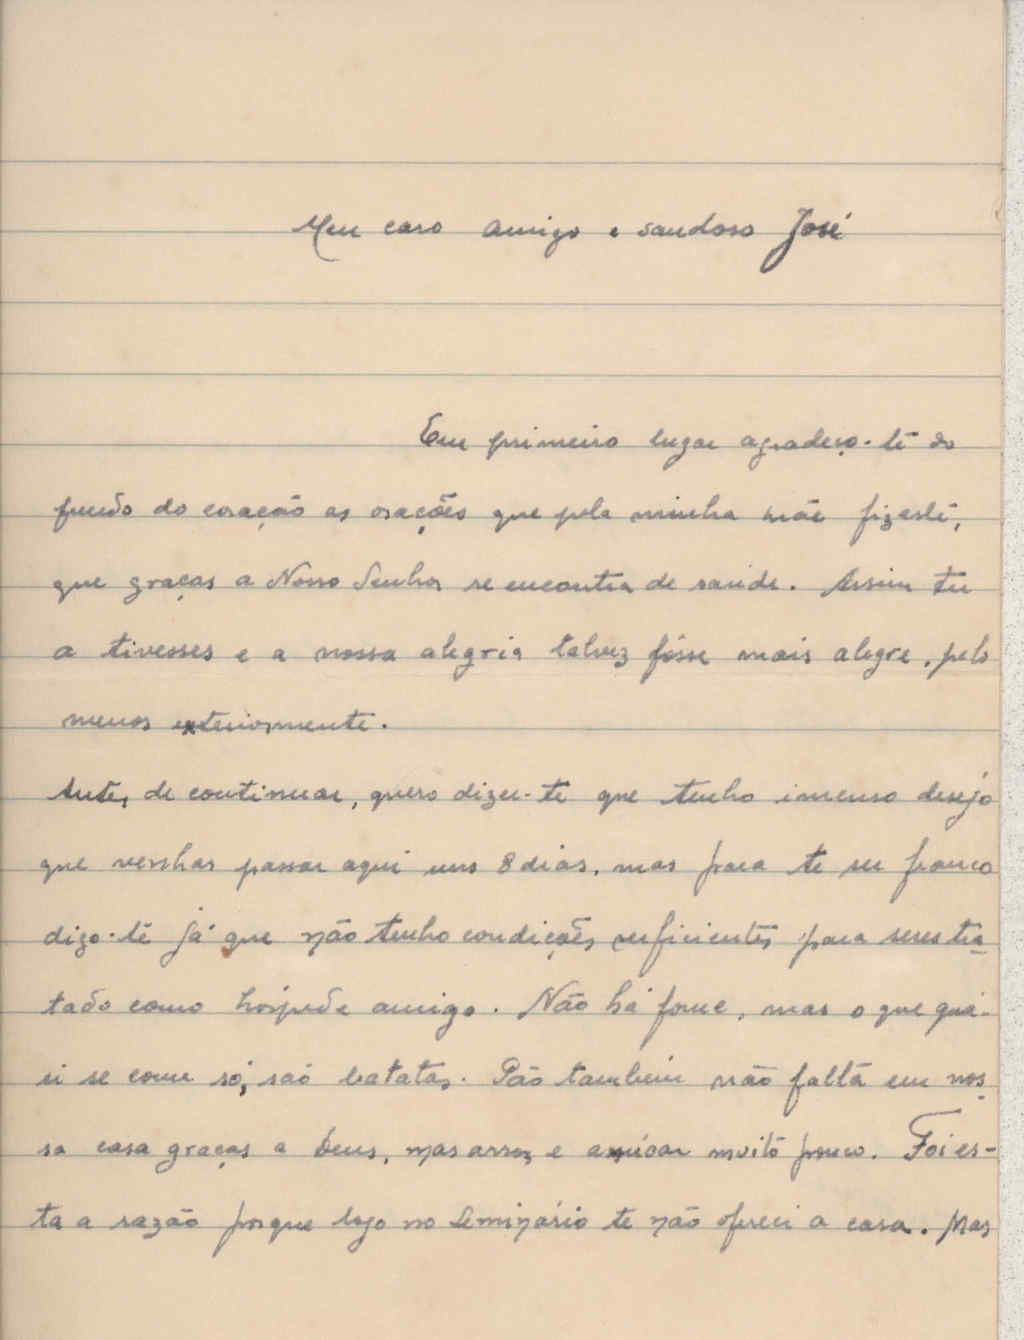 Meu caro amigo e saudoso José
Em primeiro lugar agradeço-te do
fundo do coração as orações que pela minha mãe fizeste,
que graças a Nosso Senhor se encontra de saúde. Assim tu
a tivesses e a nossa alegria talvez fôsse mais alegre, pelo
menos exteriormente.
Antes de continuar, quero dizer-te que tenho imenso desejo
que venhas passar aqui uns 8 dias, mas para te ser franco
digo-te já que não tenho condições suficientes para seres tra-
tado como hóspede amigo. Não há fome, mas o que quá-
si se come só, são batatas. Pão também não falta em nos-
sa casa graças a Deus, mas arroz e açúcar muito pouco. Foi es-
ta a razão porque logo no Seminário te não ofereci a casa. Mas